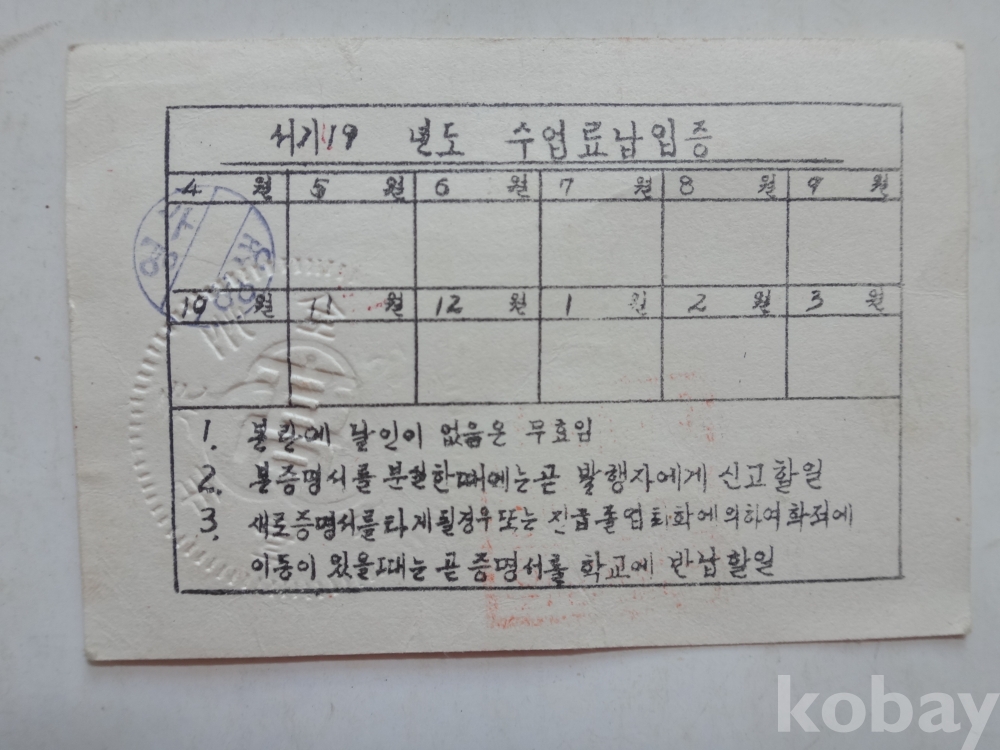 서기19 년도 수업료납입증
4 월 5 월 6 월 7 월 8 월 9 월
10 월 11 월 12 월 1 월 2 월 3 월
1. 본란에 날인이 없음은 무효임
2. 본증명서를 분실한때에는곧 발행자에게 신고할일
3. 새로증명서를타게될경우또는 진급졸업퇴학에의하여학적에
이동이 있을때는 곧 증명서를 학교에 반납할일
kobay